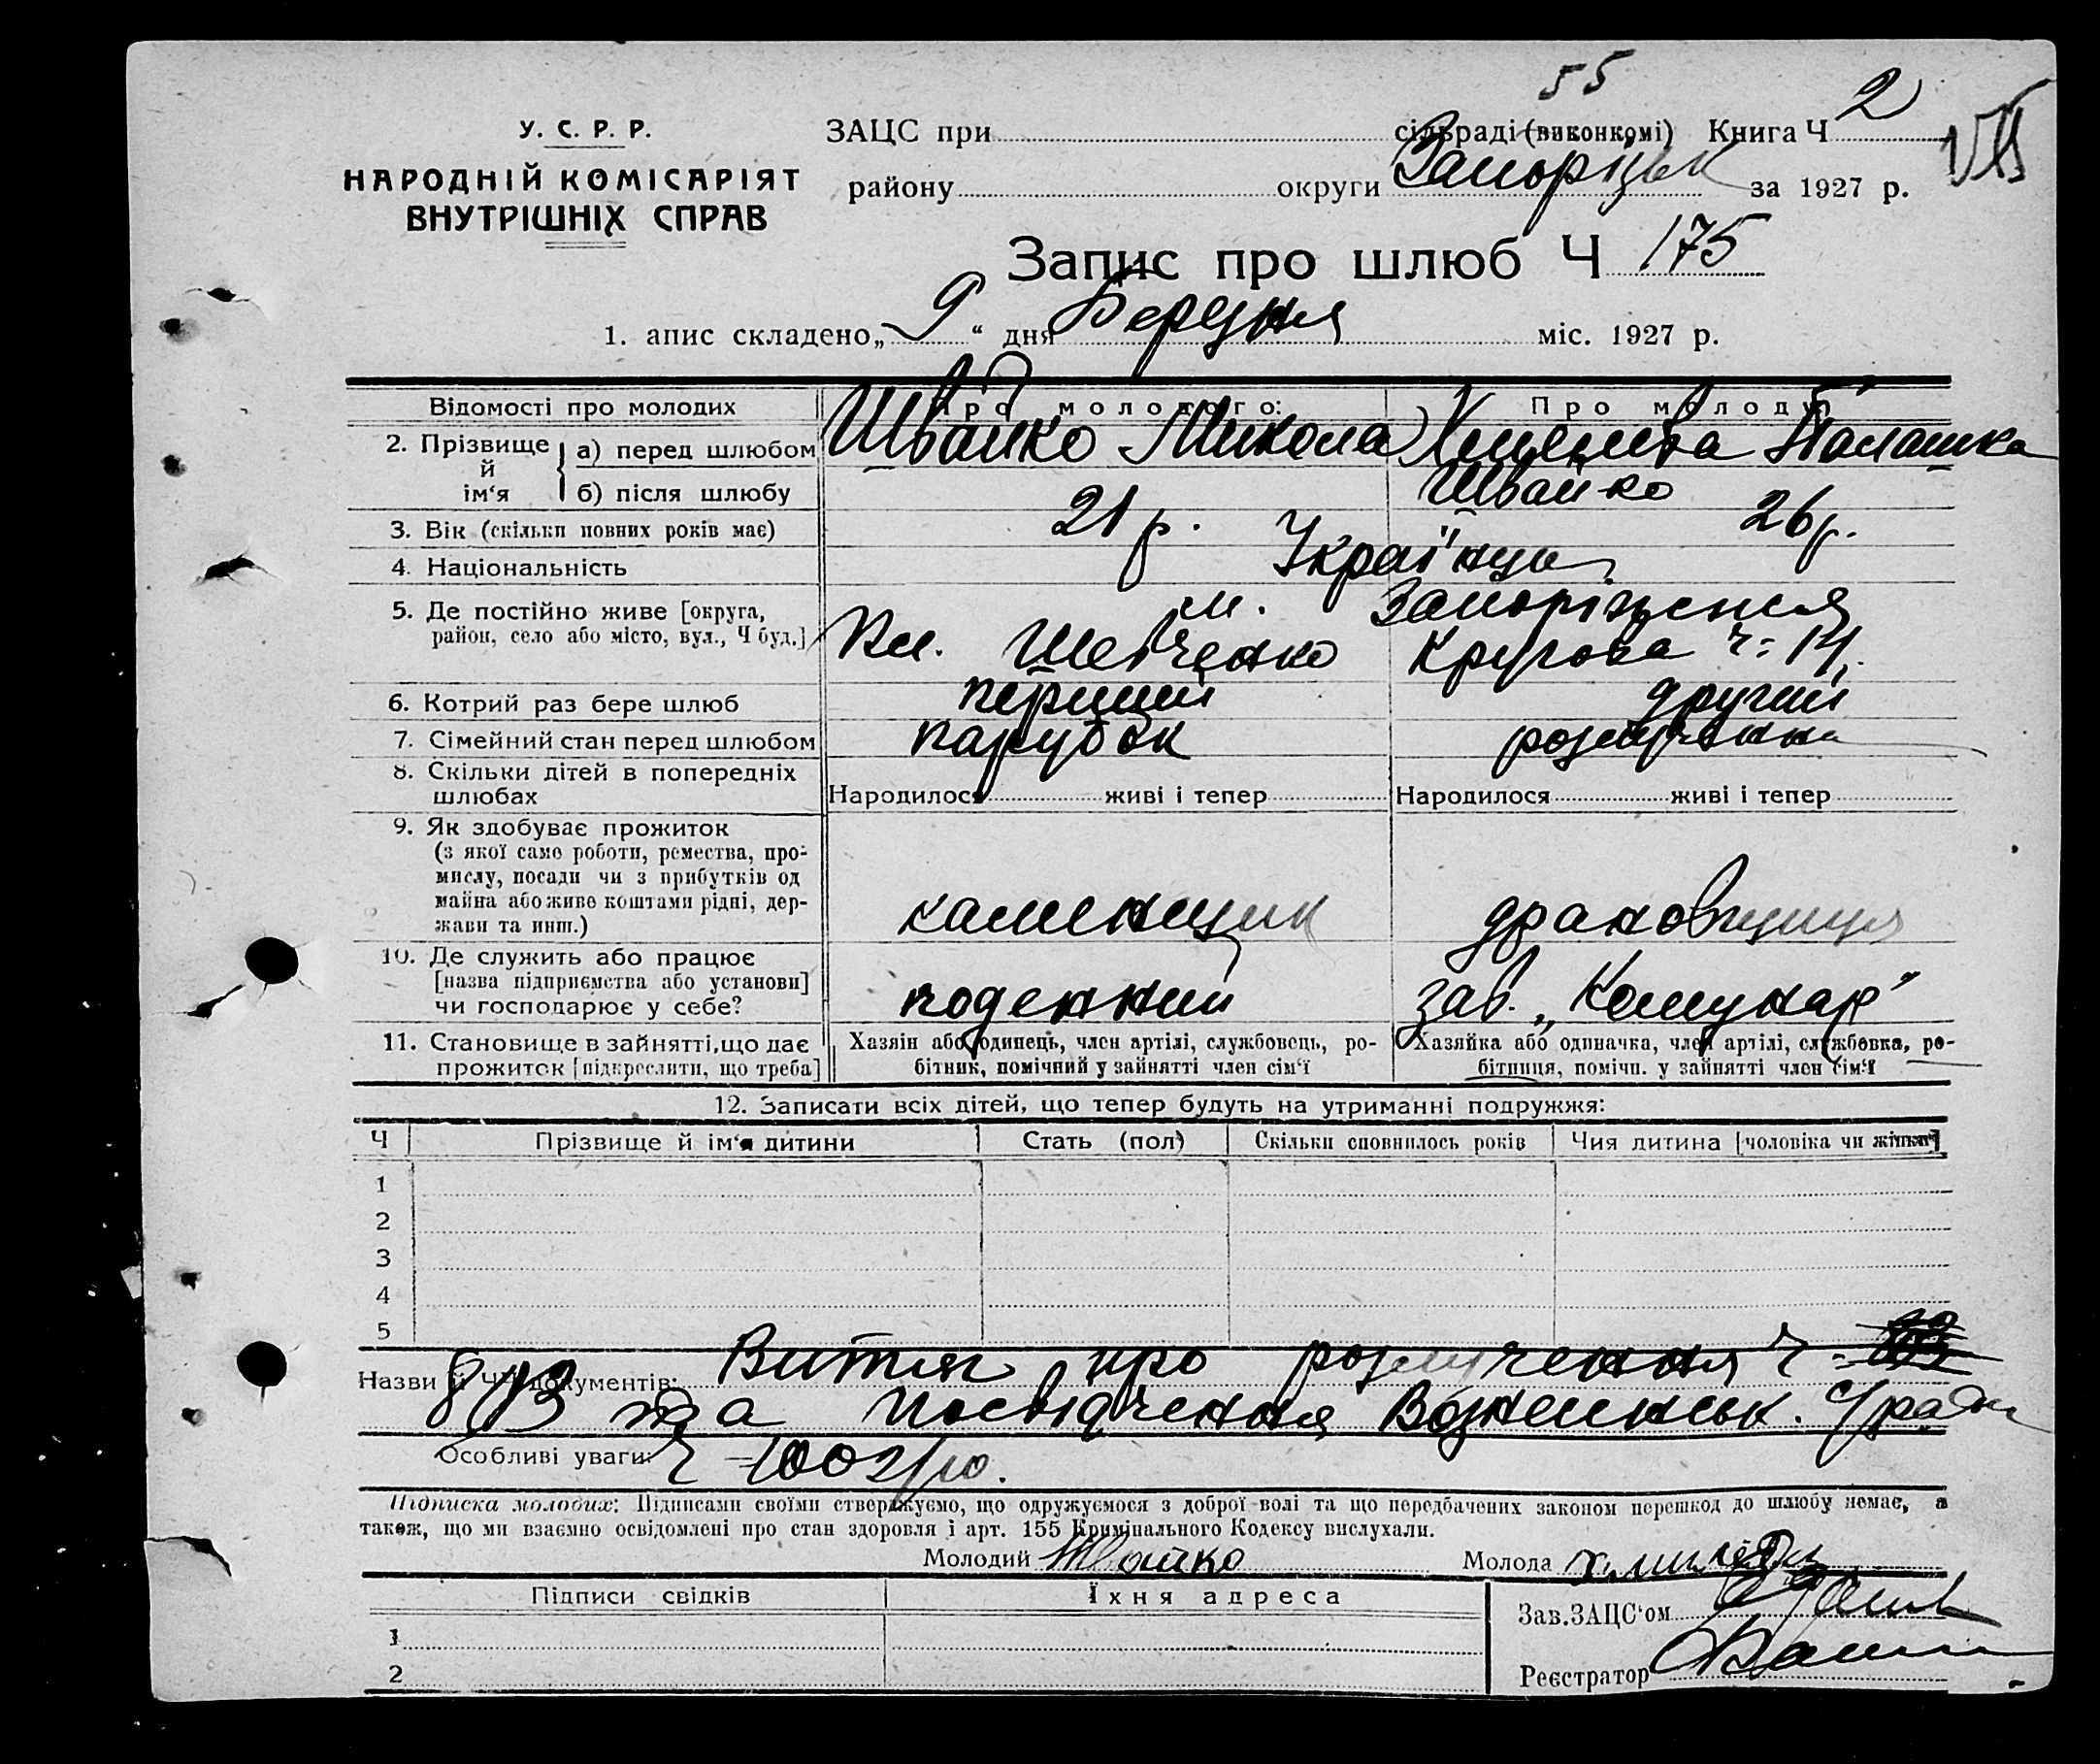 55
У. С. Р. Р.
НАРОДНІЙ КОМІСАРІЯТ
ВНУТРІШНІХ СПРАВ
ЗАЦС при сільраді (виконкомі) Книга Ч 2
району округи Запоріжськ за 1927 р.
Запис про шлюб Ч 175
1. апис складено „9“ дня Березня міс. 1927 р.
Відомості про молодих Про молодого: Про молоду:
2. Прізвище й ім‘я а) перед шлюбом Швайко Микола Палашка
б) після шлюбу Швайко
3. Вік (скільки повних років має) 21 р. 26 р.
4. Національність Українці
5. Де постійно живе [округа, район, село або місто, вул., Ч буд.] м. Запоріжжя
Шевченко Кругова ч: 14.
6. Котрий раз бере шлюб перший другий
7. Сімейний стан перед шлюбом парубок розлучена
8. Скільки дітей в попередніх шлюбах Народилося живі і тепер Народилося живі і тепер
9. Як здобуває прожиток
(з якої само роботи, ремества, про-
мислу, посади чи з прибутків од
майна або живе коштами рідні, дер-
жави та инш.) каменщик
10. Де служить або працює
[назва підприємства або установи]
чи господарює у себе? поденний зав. „Комунар"
11. Становище в зайнятті, що дає
прожиток [підкреслити, що треба]
Хазяін або одинець, член артілі, службовець, ро-
бітник, помічний у зайнятті член сім‘ї
Хазяйка або одиначка, член артілі, службовка, ро-
бітниця, помічн. у зайнятті член сім‘ї
12. Записати всіх дітей, що тепер будуть на утриманні подружжя:
Ч Прізвище й ім‘я дитини Стать (пол) Скільки сповнилось років Чия дитина [чоловіка чи жінки]
1
2
3
4
5
Назви й ЧЧ документів: Витяг про розлучення ч
813 та посвідчення Вознесенськ. С/ради
Особливі уваги: Ч
Підписка молодих: Підписами своїми стверджуємо, що одружуємося з доброї волі та що передбачених законом перешкод до шлюбу немає, а
також, що ми взаємно освідомлені про стан здоровля і арт. 155 Кримінального Кодексу вислухали.
Молодий Швайко Молода
Підписи свідків Їхня адреса
Зав. ЗАЦС‘ом
1
Реєстратор
2